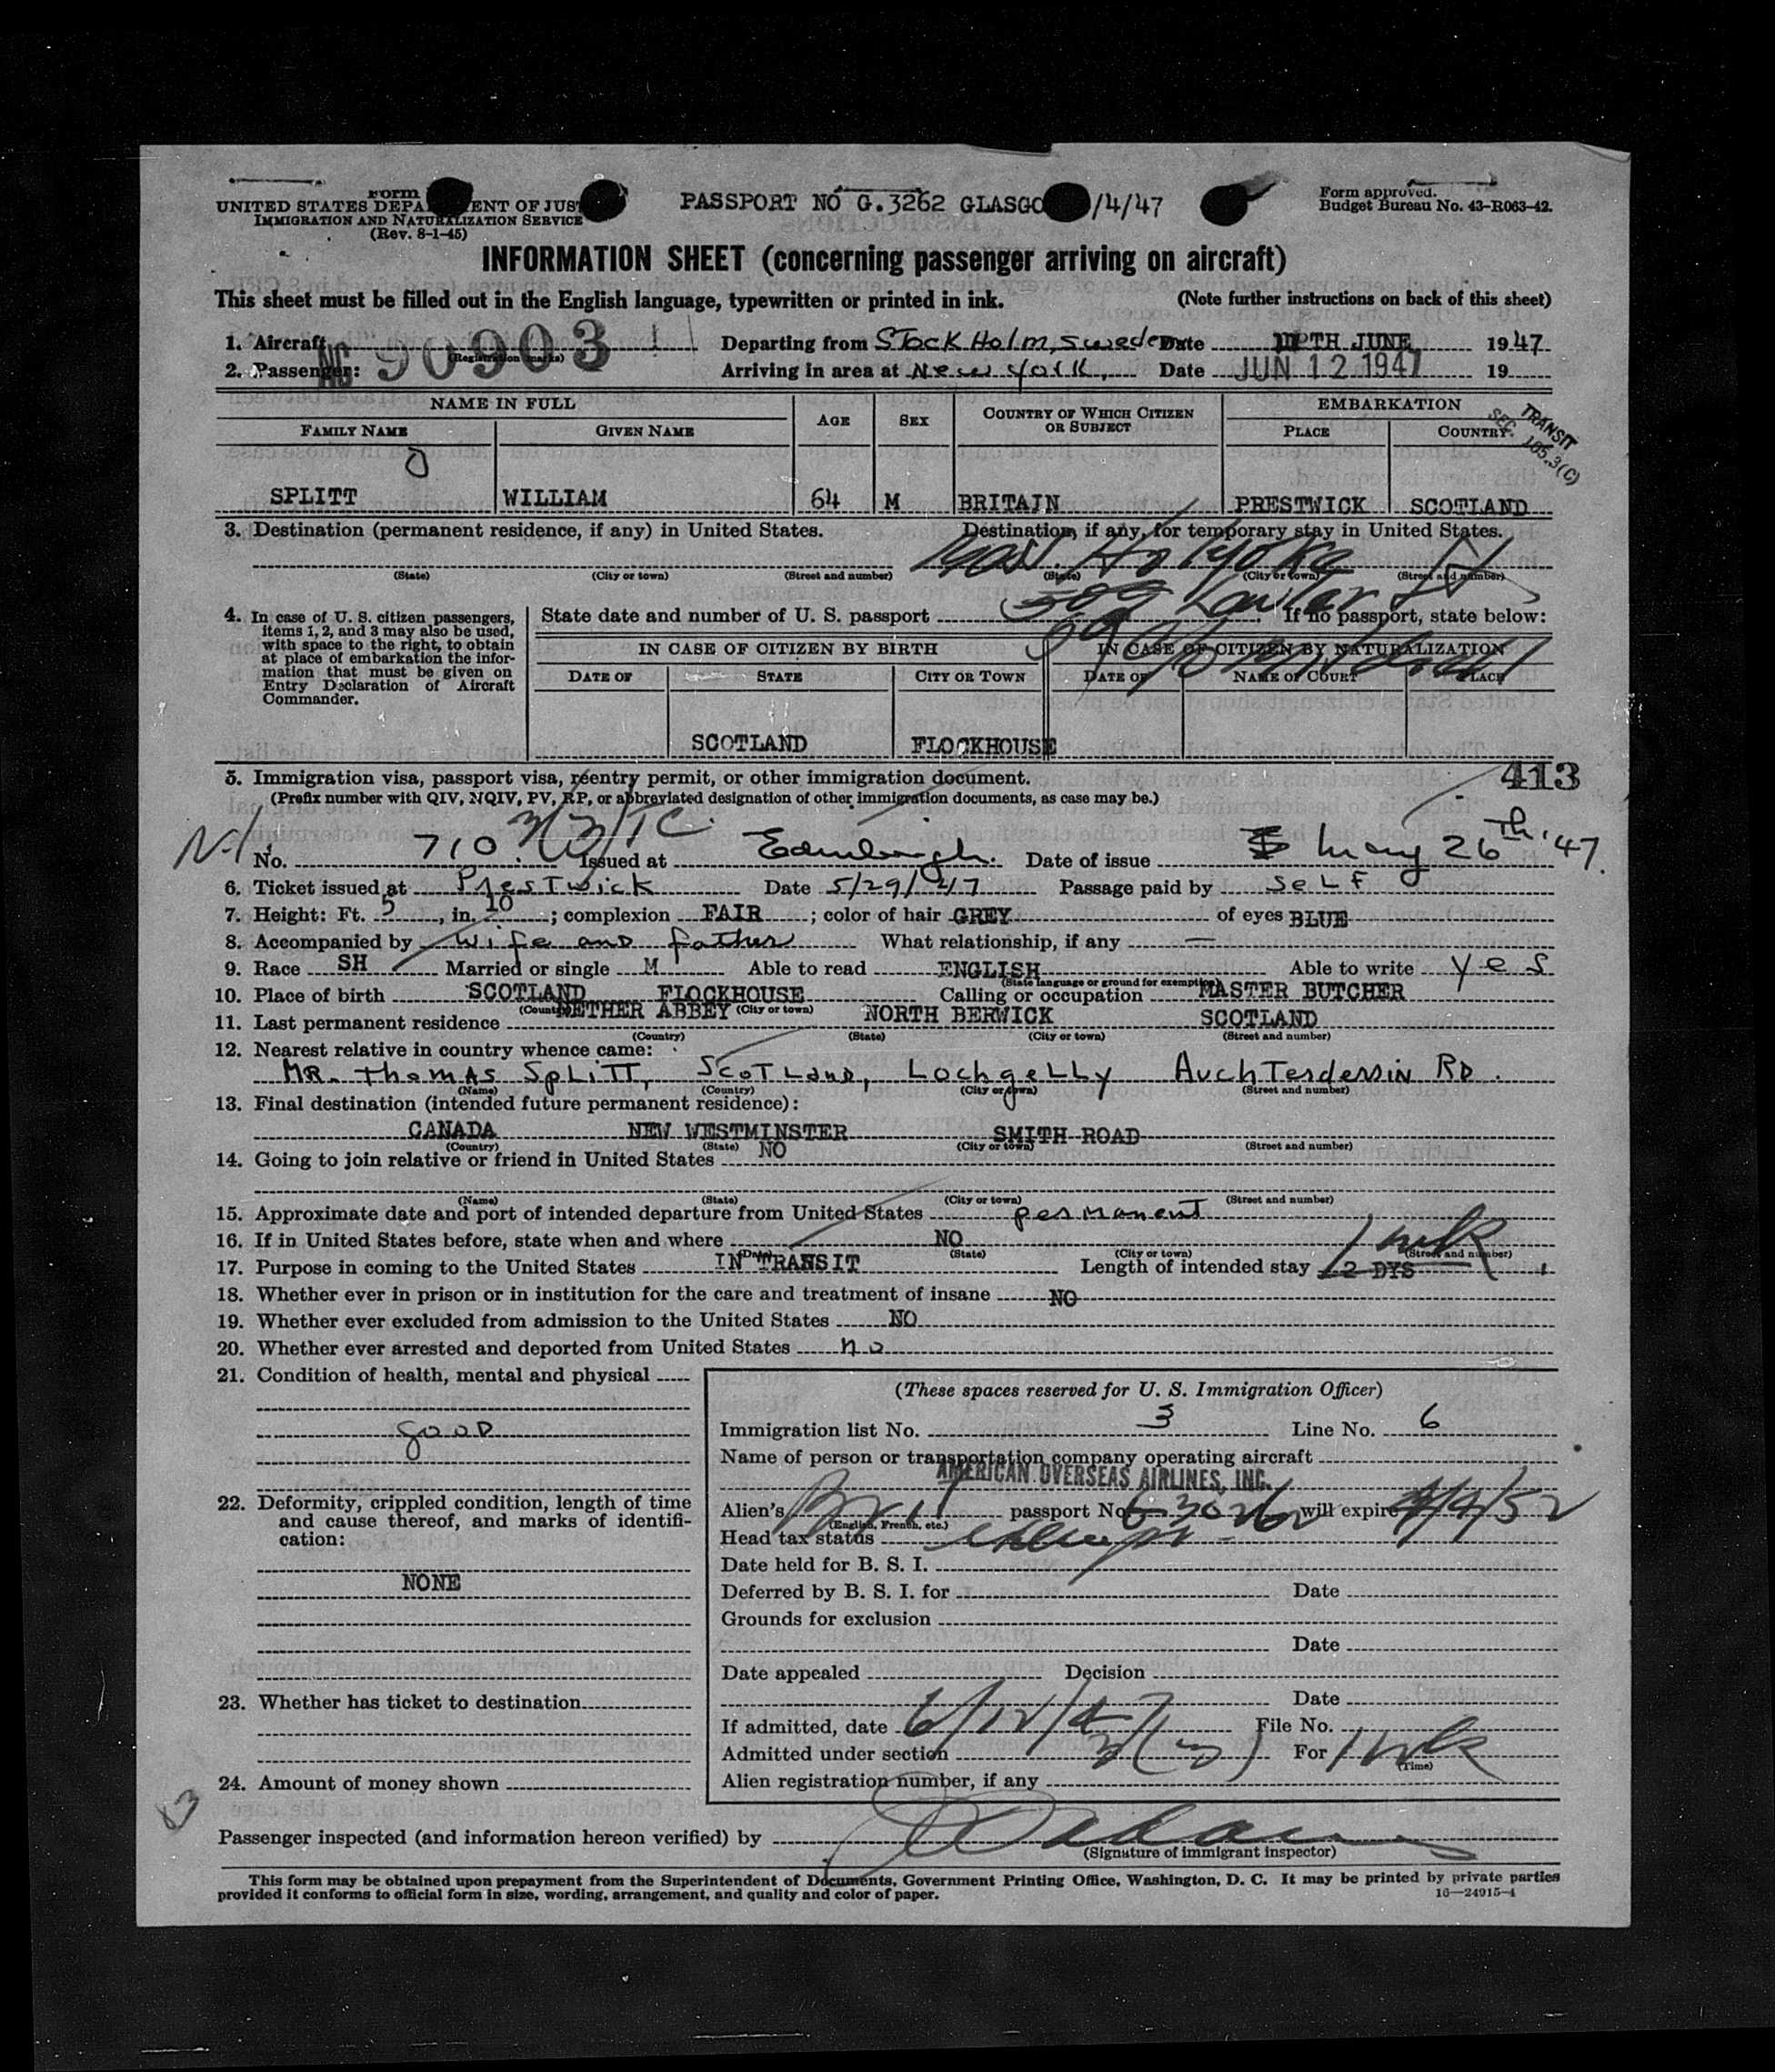 Form
UNITED STATES DEPA ENT OF JUS
IMMIGRATION AND NATURALIZATION SERVICE
(Rev. 8-1-45)
PASSPORT NO G.3262 GLASGO /4/47
Form approved.
Budget Bureau No. 43-R063-42.
INFORMATION SHEET (concerning passenger arriving on aircraft)
This sheet must be filled out in the English language, typewritten or printed in ink. (Note further instructions on back of this sheet)
1. Aircraft NC 90903 (Registration marks) Departing from StockHolm, Sweden Date TH JUNE 1947
2. Passenger: Arriving in area at New York, Date JUN 12 1947 19
NAME IN FULL AGE SEX COUNTRY OF WHICH CITIZEN OR SUBJECT EMBARKATION
FAMILY NAME GIVEN NAME PLACE COUNTRY
TRANSIT
SEC. 105.3(C)
SPLITT WILLIAM 64 M BRITAIN PRESTWICK SCOTLAND
3. Destination (permanent residence, if any) in United States. Destination, if any, for temporary stay in United States.
Mass. Holyoke
(State) (City or town) (Street and number) (State) (City or town) (Street and number)
4. In case of U. S. citizen passengers, items 1, 2, and 3 may also be used, with space to the right, to obtain at place of embarkation the information that must be given on Entry Declaration of Aircraft Commander.
State date and number of U. S. passport If no passport, state below:
IN CASE OF CITIZEN BY BIRTH IN CASE OF CITIZEN BY NATURALIZATION
DATE OF STATE CITY OR TOWN DATE OF NAME OF COURT PLACE
SCOTLAND FLOCKHOUSE
5. Immigration visa, passport visa, reentry permit, or other immigration document. 413
(Prefix number with QIV, NQIV, PV, RP, or abbreviated designation of other immigration documents, as case may be.)
No. 710 Issued at Edinburgh. Date of issue May 26th, '47.
6. Ticket issued at Prestwick Date 5/29/47 Passage paid by SELF
7. Height: Ft. 5, in. 10; complexion FAIR; color of hair GREY of eyes BLUE
8. Accompanied by wife and father What relationship, if any —
9. Race SH Married or single M Able to read ENGLISH Able to write yes
(State language or ground for exemption)
10. Place of birth SCOTLAND FLOCKHOUSE Calling or occupation MASTER BUTCHER
(Country) (City or town)
11. Last permanent residence NETHER ABBEY NORTH BERWICK SCOTLAND
(Country) (State) (City or town) (Street and number)
12. Nearest relative in country whence came:
MR. Thomas Splitt, Scotland, Lochgelly Auchterderrin RD.
(Name) (Country) (City or town) (Street and number)
13. Final destination (intended future permanent residence):
CANADA NEW WESTMINSTER SMITH ROAD
(Country) (State) (City or town) (Street and number)
14. Going to join relative or friend in United States NO
(Name) (State) (City or town) (Street and number)
15. Approximate date and port of intended departure from United States permanent
16. If in United States before, state when and where NO
(Date) (State) (City or town) (Street and number)
17. Purpose in coming to the United States IN TRANSIT Length of intended stay 2 DYS 1 wk
18. Whether ever in prison or in institution for the care and treatment of insane NO
19. Whether ever excluded from admission to the United States NO
20. Whether ever arrested and deported from United States no
21. Condition of health, mental and physical
good
22. Deformity, crippled condition, length of time and cause thereof, and marks of identification:
NONE
23. Whether has ticket to destination
24. Amount of money shown
(These spaces reserved for U. S. Immigration Officer)
Immigration list No. 3 Line No. 6
Name of person or transportation company operating aircraft
AMERICAN OVERSEAS AIRLINES, INC.
Alien's Brit passport No. will expire 4/4/52
(English, French, etc.)
Head tax status
Date held for B. S. I.
Deferred by B. S. I. for Date
Grounds for exclusion
Date
Date appealed Decision
Date
If admitted, date 6/12/47 File No.
Admitted under section 3(3) For 1 wk
(Time)
Alien registration number, if any
Passenger inspected (and information hereon verified) by
(Signature of immigrant inspector)
This form may be obtained upon prepayment from the Superintendent of Documents, Government Printing Office, Washington, D. C. It may be printed by private parties
provided it conforms to official form in size, wording, arrangement, and quality and color of paper. 16—24915-4